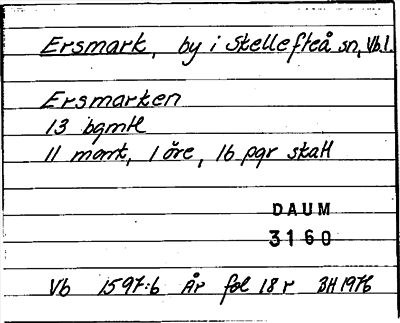 Ersmark, by i Skellefteå sn, Vb.l.
Ersmarken
13 bgmtl
11 mant, 1 öre, 16 pgr skatt
DAUM
3160
Vb 1597:6 År fol 18 r BH 1976